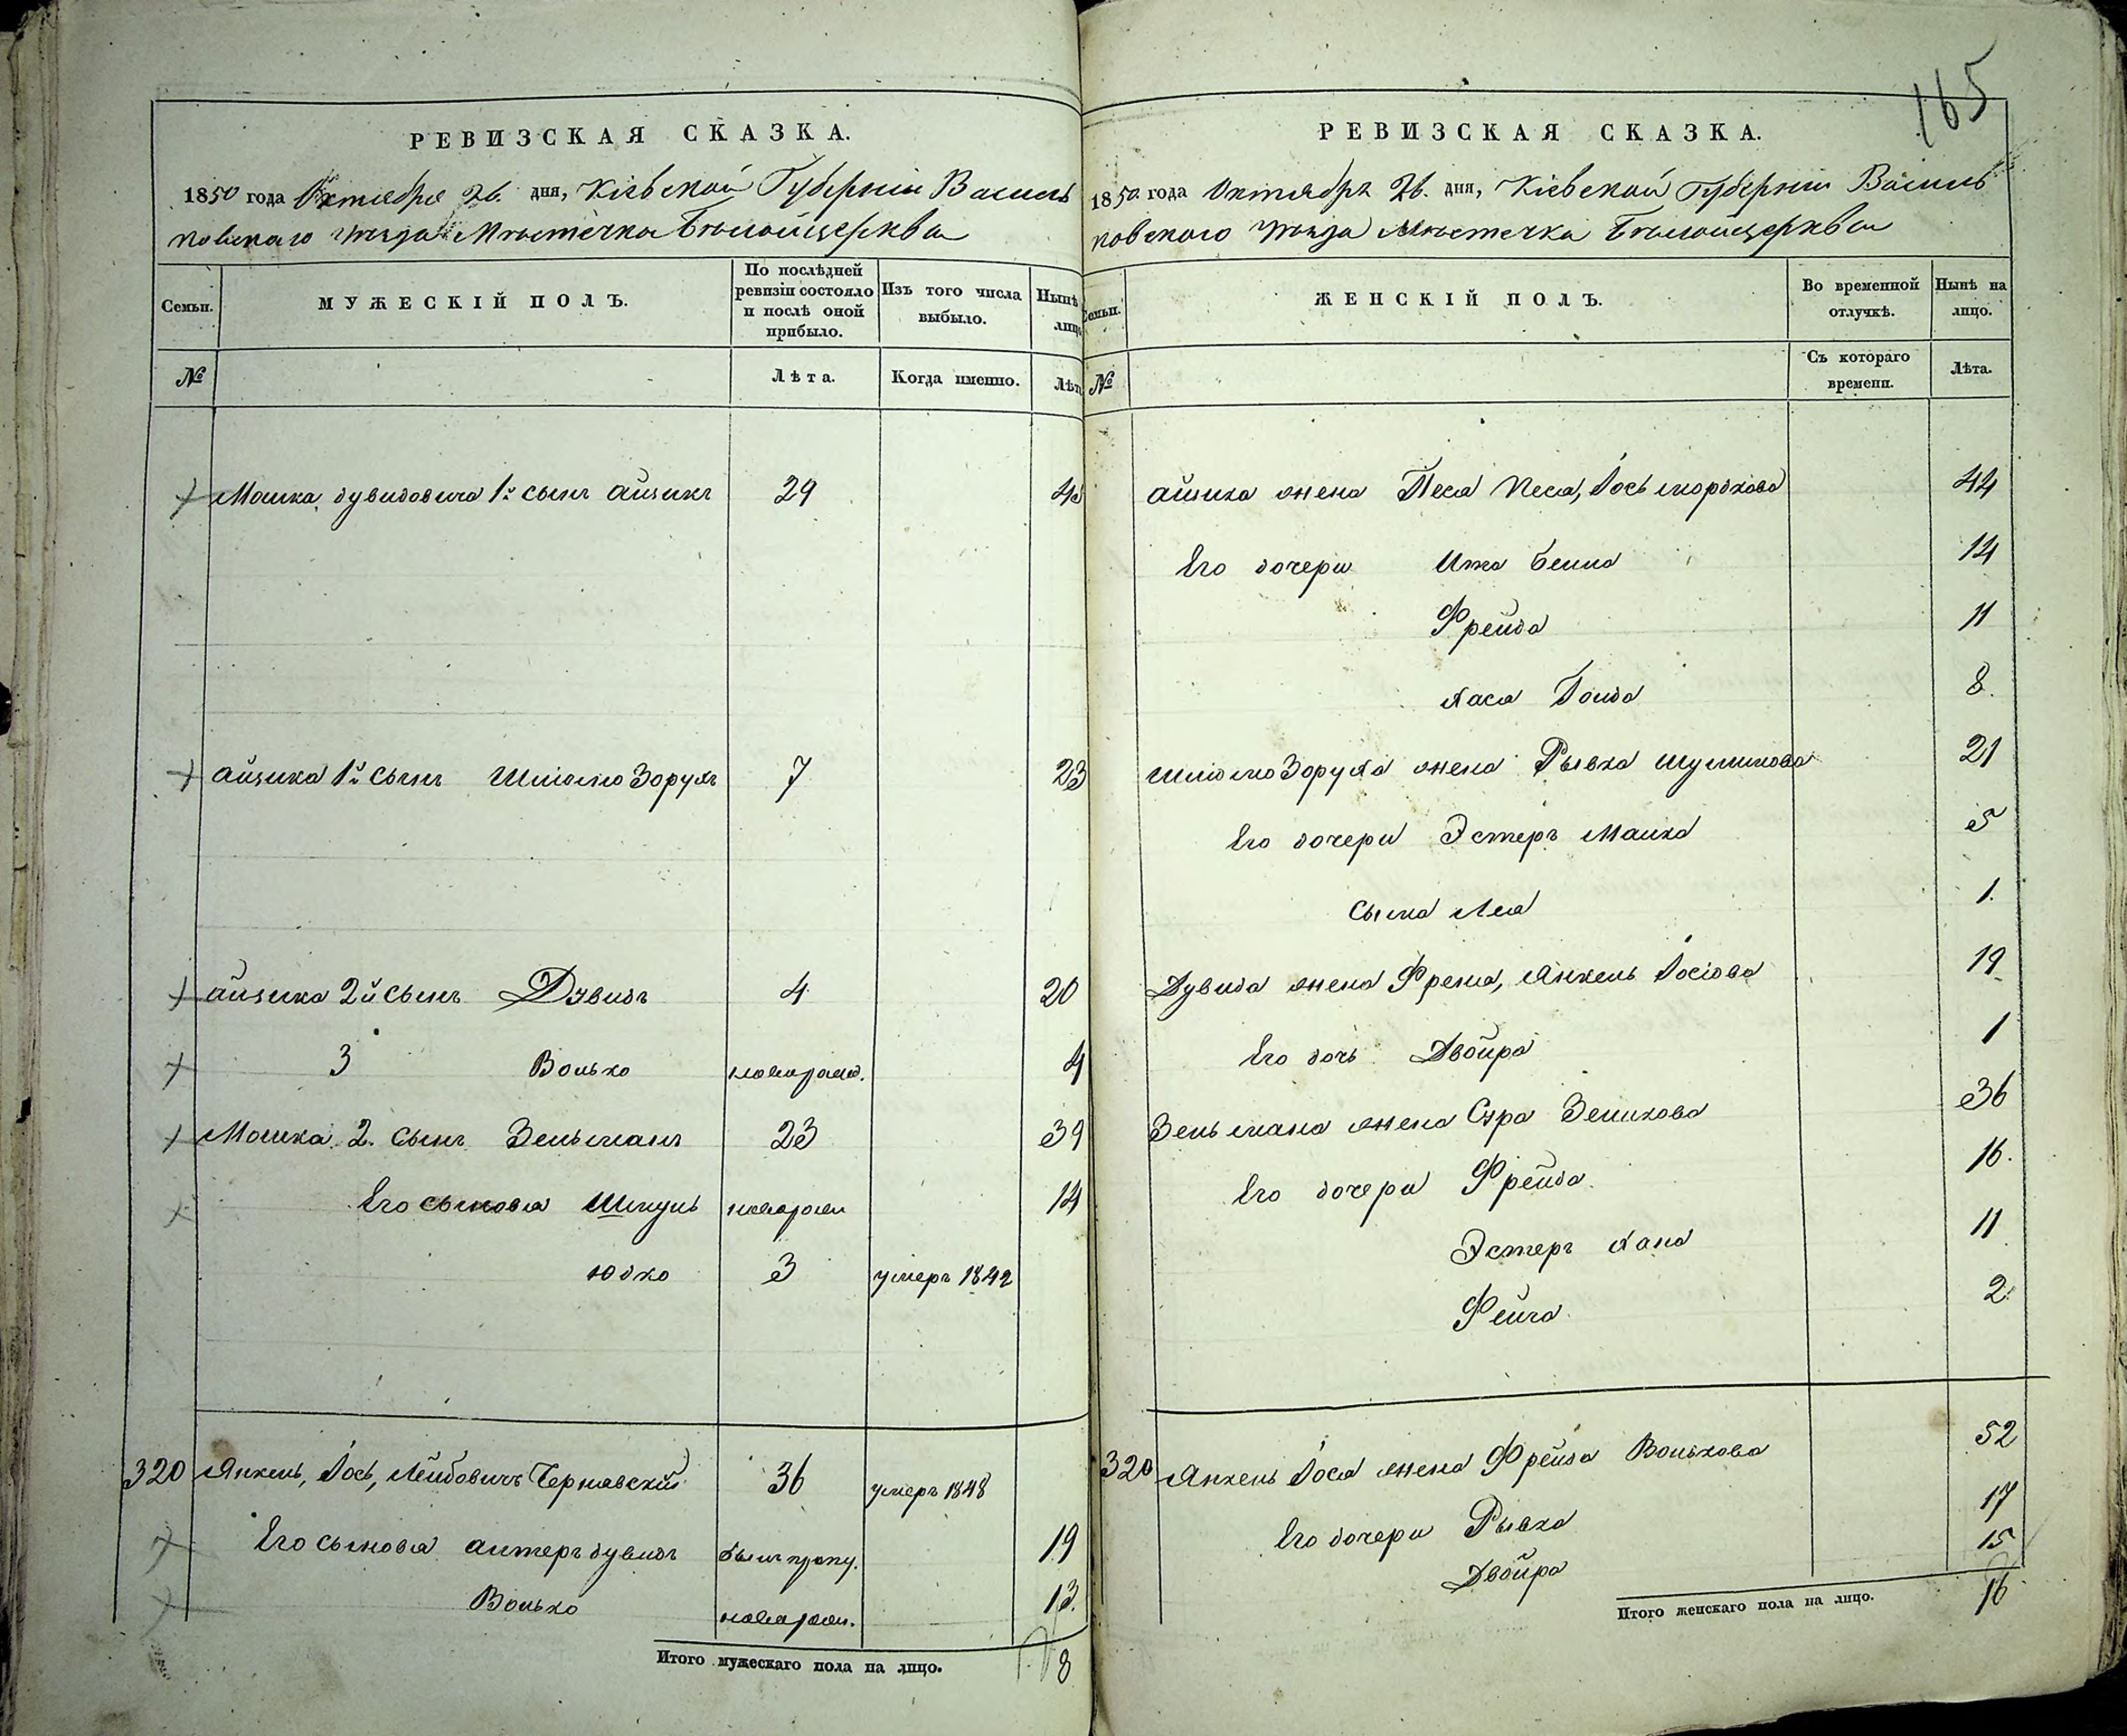 165
РЕВИЗСКАЯ СКАЗКА.
1850 года Октября 26. дня, Кіевской Губерніи Василь
ковскаго уѣзда Мѣстечка Бѣлойцеркви
Семьи.
МУЖЕСКІЙ ПОЛЪ.
По послѣдней ревизіи состояло и послѣ оной прибыло.
Изъ того числа выбыло.
Нынѣ лицо
№
Лѣта.
Когда именно.
Лѣта
Мошка дувидовича 1й сынъ айзикъ 29 45
айзика 1й сынъ Шліомо Зорухъ 7 23
айзика 2й сынъ Дувидъ 4 20
3 Волько новорожд. 4
Мошка 2. сынъ Зельманъ 23 39
Его сыновья Шмуль новорожд 14
Юдко 3 умеръ 1842
320 Янкель, Іось, Лейбовичъ Чернявскій 36 умеръ 1848
Его сыновья алтеръ дувидъ былъ пропу. 19
Волько новорожд. 13.
Итого мужескаго пола на лицо. 8
РЕВИЗСКАЯ СКАЗКА.
1850 года Октября 26. дня, Кіевской Губерніи Василь
ковского уѣзда Мѣстечка Бѣлойцеркви
Семьи.
ЖЕНСКІЙ ПОЛЪ.
Во временной отлучкѣ.
Нынѣ на лицо.
№
Съ котораго времени.
Лѣта.
айзика жена Песя Іось мордкова 44
Его дочери Ита Бейла 14
Фрейда 11
Хася Голда 8.
Шліомо Зоруха жена Рывка шулимова 21
Его дочери Эстеръ Малка 5
Сыма Лея 1.
Дувида жена Фрема, Янкель Іосіова 19
Его дочь Двойра 1
Зельмана жена Сура Зеликова 36
Его дочери Фрейда 16.
Эстеръ Хана 11
Фейга 2
320 Янкель Іося жена Фрейда Волькова 52
Его дочери Рывка 17
Двойра 15
Итого женскаго пола на лицо. 16